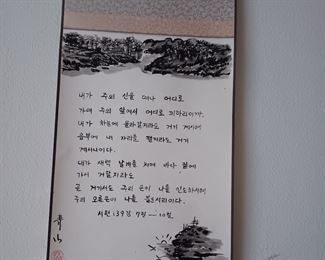 내가 주의 신을 떠나 어디로
가며 주의 앞에서 어디로 피하리이까
내가 하늘에 올라갈지라도 거기 계시며
음부에 내 자리를 펼지라도 거기
계시니이다.
내가 새벽 날개를 치며 바다 끝에
가서 거할지라도
곧 거기서도 주의 손이 나를 인도하시며
주의 오른손이 나를 붙드시리이다.
시편 139편 7절 — 10절